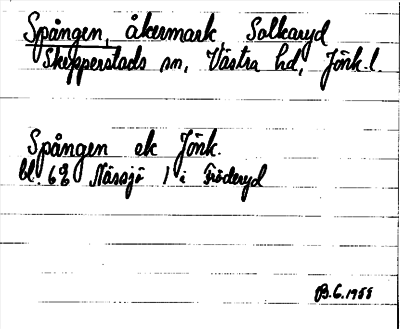 Spången, åkermark, Solkaryd
Skepperstads sn, Västra hd, Jönk. l.
Spången ek Jönk.
bl. 62 Nässjö 1 i Fröderyd
B.G. 1955